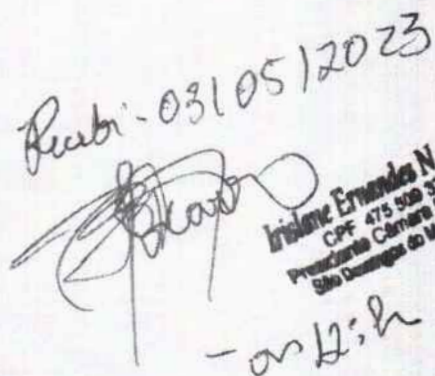 Recebi - 03/05/2023
Irislane Ernandes N
CPF 475 509 3
Presidente Câmara
São Domingos do M